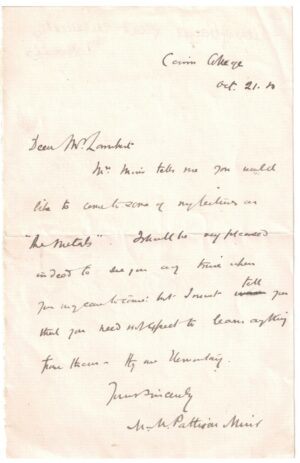 Caius College
Oct. 21. 80
Dear Mr Lambert
Mrs Muir tells me you would
like to come to some of my lectures on
"the Metals". I shall be very pleased
indeed to see you any time when
you may care to come: but I must tell you
that you need not expect to learn anything
from them – they are elementary.
Yours sincerely
M. M. Pattison Muir